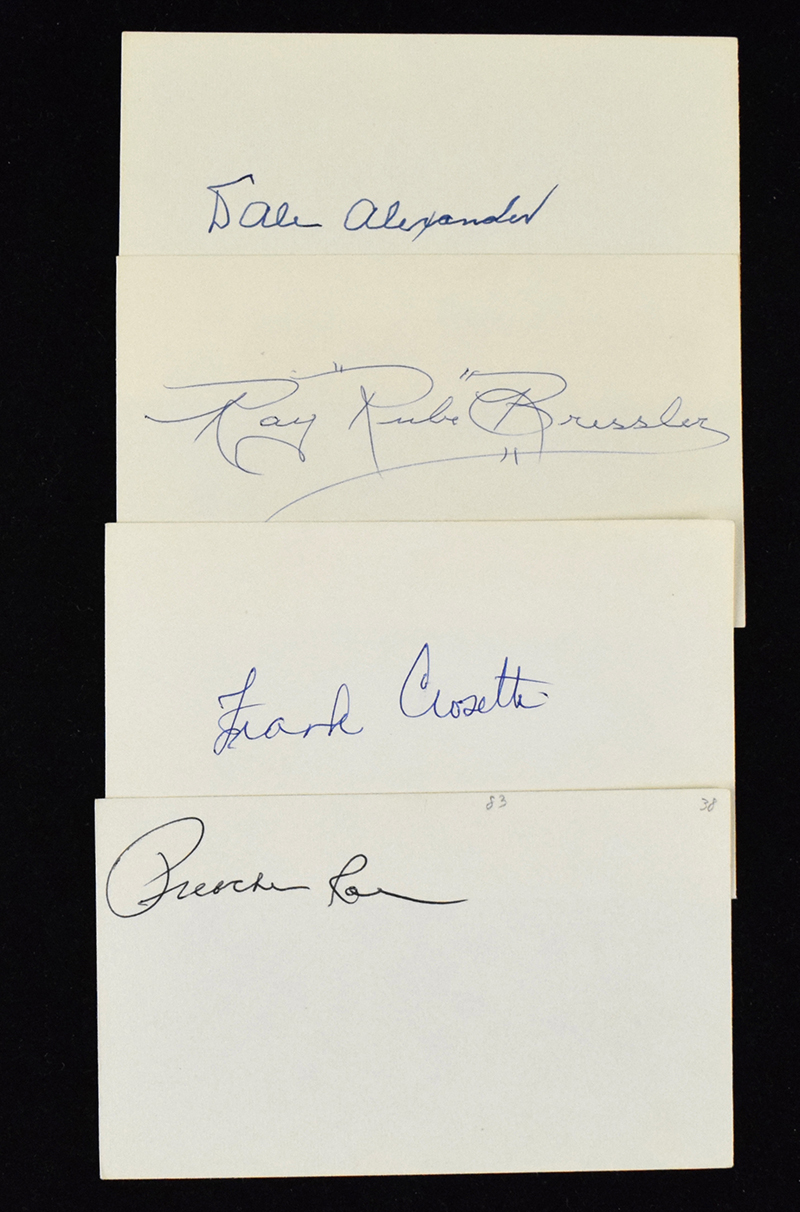 Dale Alexander
Ray "Rube" Bressler
Frank Crosetti
83 38
Preacher Roe